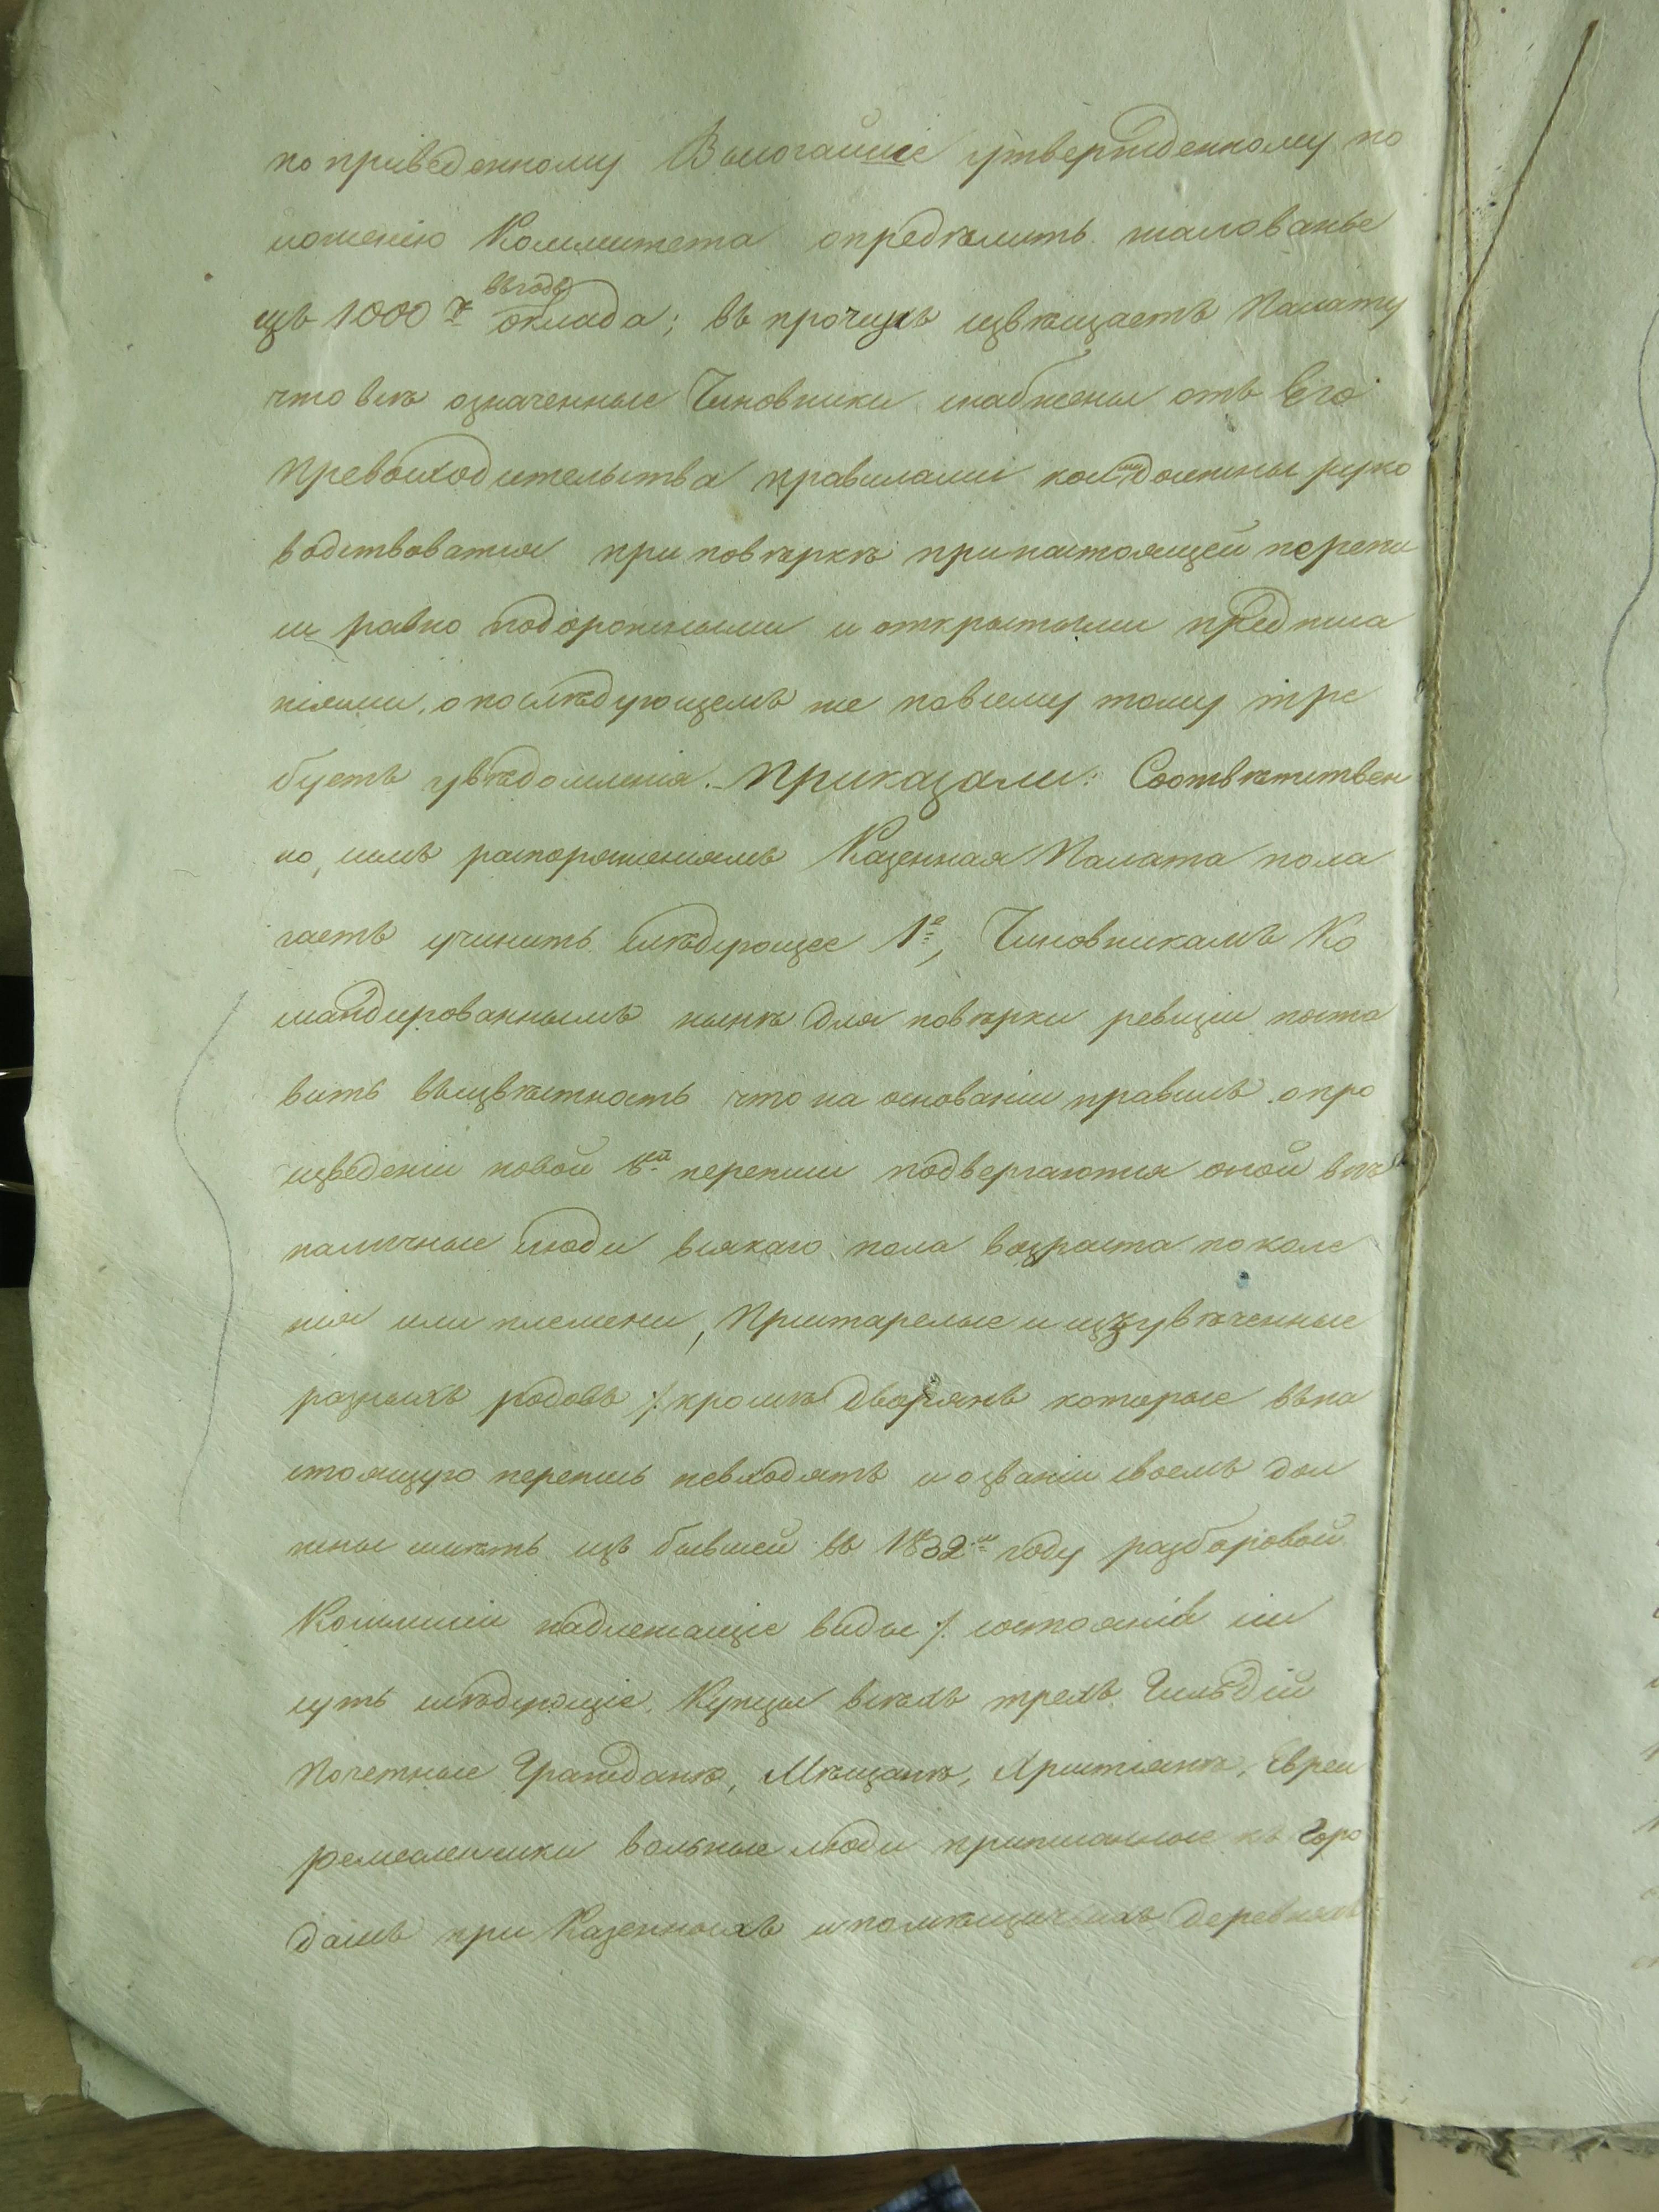 по приведенному Высочайше утвержденному по
ложенію Коммитета опредѣлить жалованье
въ годъ
изъ 1000 р оклада; въ прочихъ извѣщаетъ Палату
что всѣ означенные Чиновники снабжены отъ Его
Превосходительства правилами коими должны руко
водствоватся при повѣркѣ при настоящей перепи
си равно подорожными и открытыми предписа
ніями, о послѣдующемъ же по всему тому тре
буетъ увѣдомленія. Приказали: Соотвѣтствен
но симъ распоряженіямъ Казенная Палата пола
гаетъ учинить слѣдующее 1е, Чиновникамъ Ко
мандированнымъ нынѣ для повѣрки ревизіи поста
вить въ извѣстность что на основаніи правилъ о про
изведеніи новой 8ой переписи подвергаются оной всѣ
наличные люди всякаго пола возраста поколе
нія или племени, Престарелые и изувѣченные
разныхъ родовъ /: кромѣ дворянъ которые въ на
стоящую перепись невходятъ и о званіи своемъ дол
жны имѣть изъ бывшей въ 1832м году разборовой
Коммисіи надлежащіе виды :/ состоянія сіи
суть слѣдующіе. Купцы всѣхъ трехъ Гильдій
Почетные Гражданѣ, Мѣщанѣ, Христіянѣ, Евреи
ремесленники вольные люди приписанные къ горо
дамъ при Казенныхъ и помѣщичьихъ деревняхъ